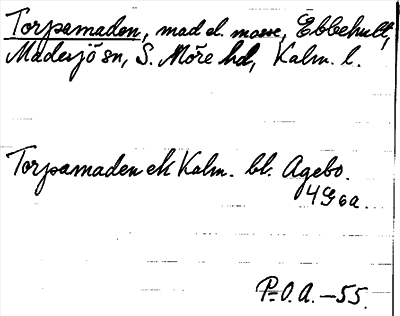 Torpamaden, mad el. mosse, Ebbehult,
Madesjö sn, S. Möre hd, Kalm. l.
Torpamaden ek Kalm. bl. Agebo.
4G6a.
P.O.A.-55.